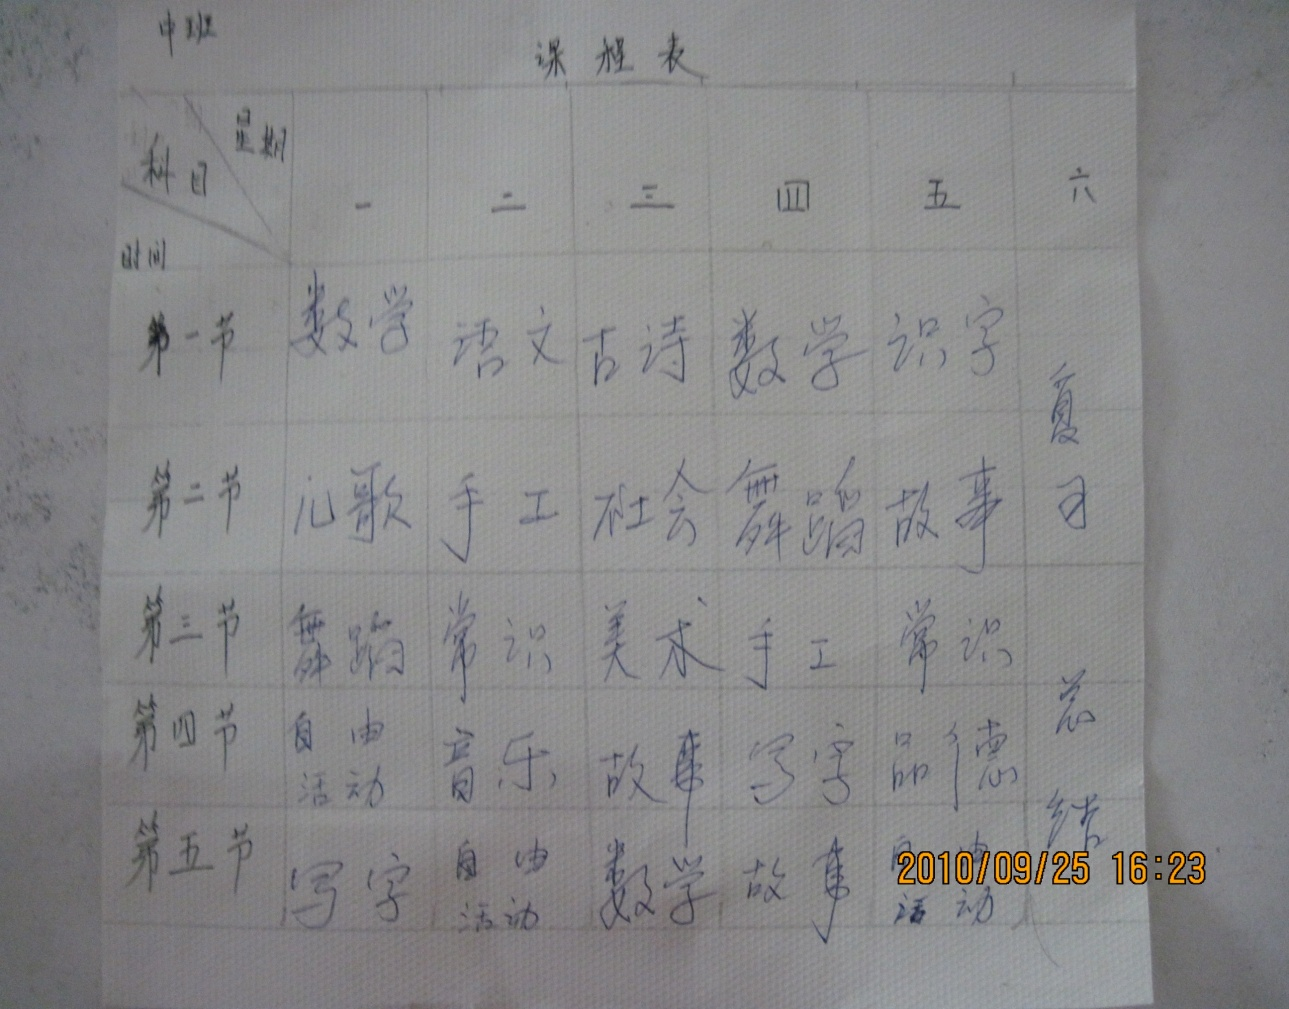 中班
课程表
星期
科目
时间
一 二 三 四 五 六
第一节 数学 语文 古诗 数学 识字
第二节 儿歌 手工 社会 舞蹈 故事
第三节 舞蹈 常识 美术 手工 常识
第四节 自由活动 音乐 故事 写字 品德
第五节 写字 自由活动 数学 故事 自由活动
复习 总结
2010/09/25 16:23